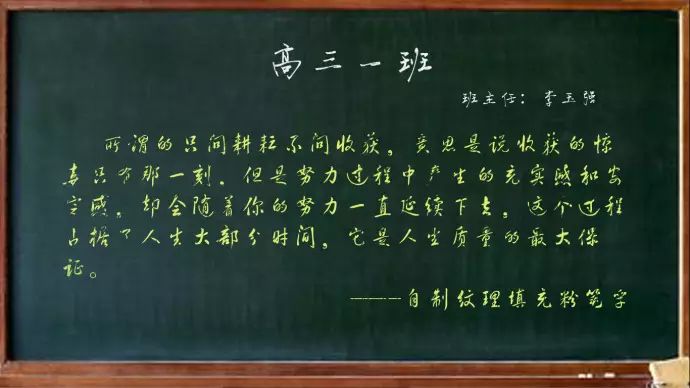 高三一班
班主任：李玉强
所谓的只问耕耘不问收获，意思是说收获的惊
喜只有那一刻，但是努力过程中产生的充实感和安
定感，却会随着你的努力一直延续下去，这个过程
占据了人生大部分时间，它是人生质量的最大保
证。
————自制纹理填充粉笔字